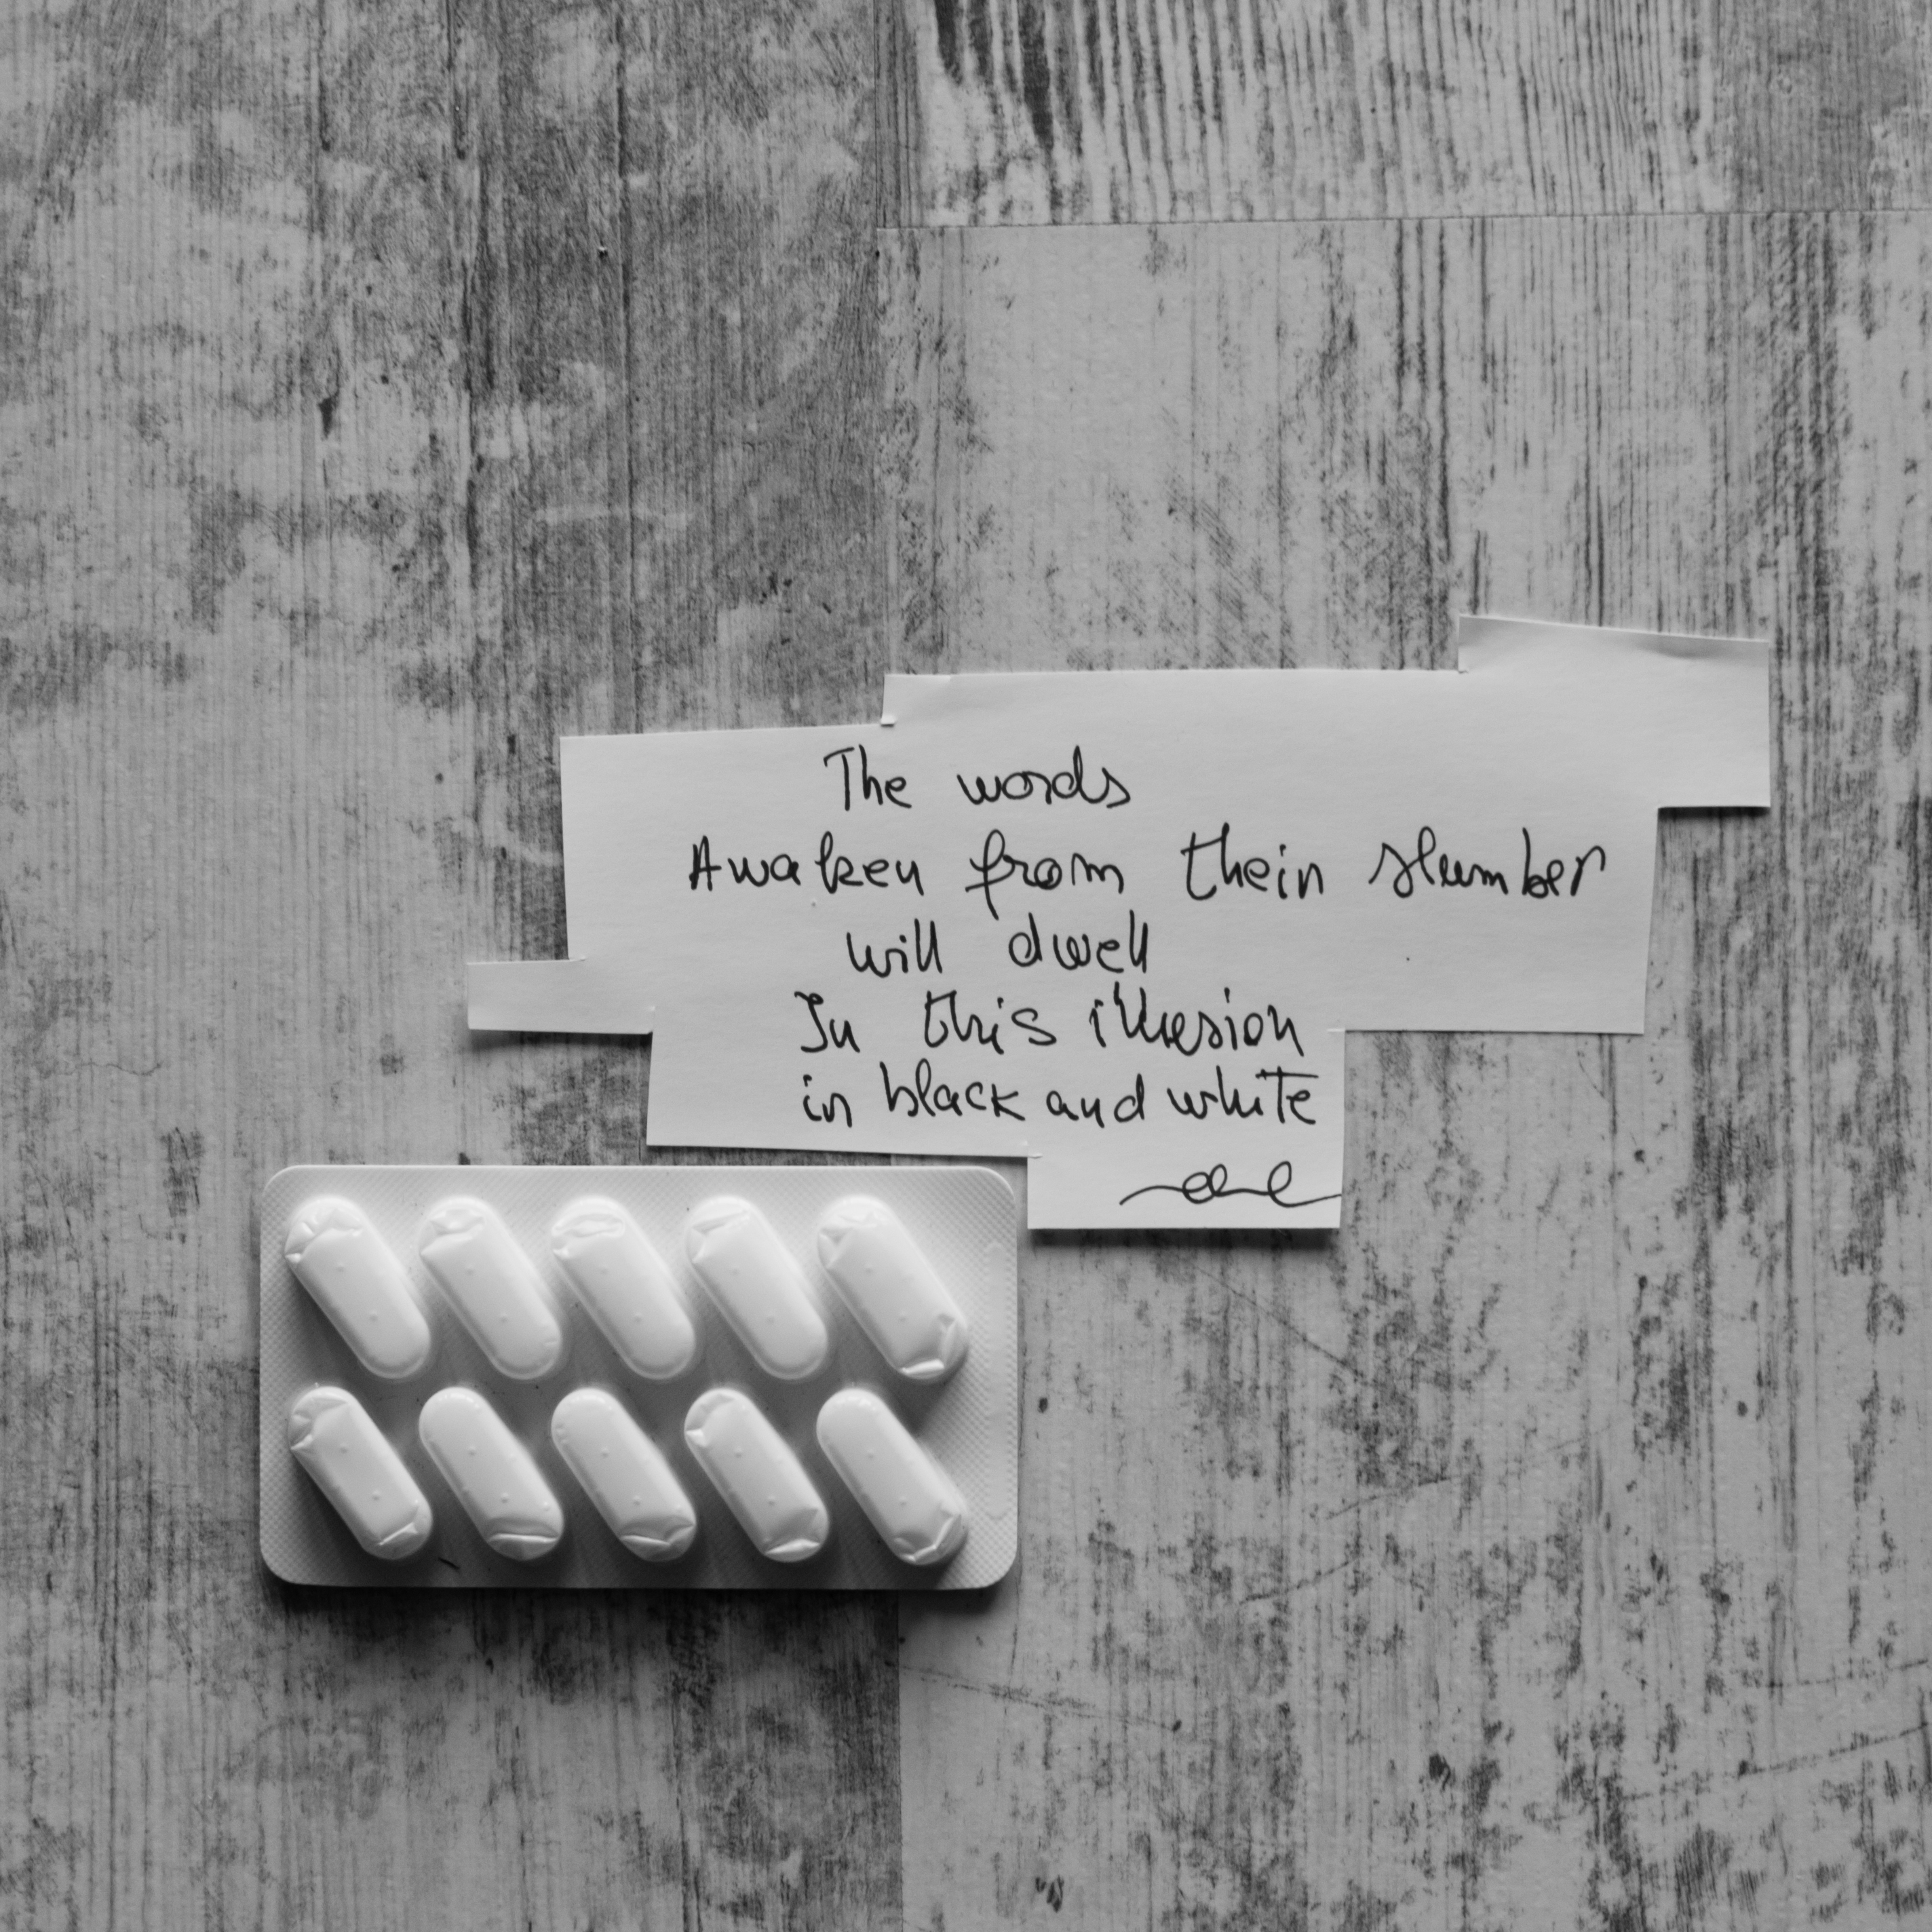 The words
Awaken from their slumber
will dwell
In this illusion
in black and white